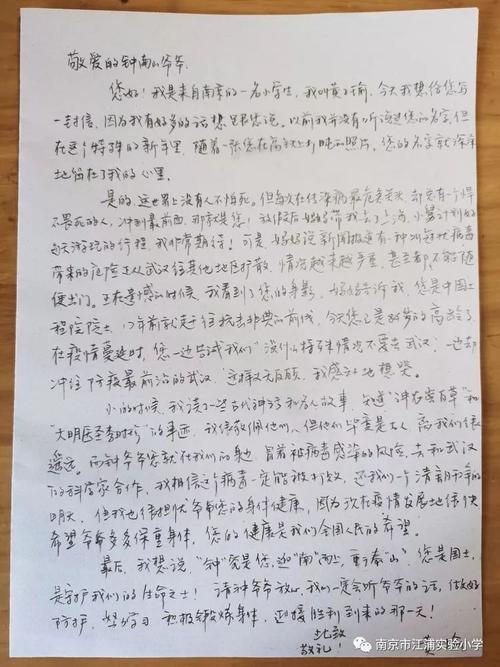 敬爱的钟南山爷爷:
您好!我是来自南京的一名小学生,我叫黄子瑜,今天我想给您写
一封信,因为我有好多的话想跟您说。以前我并没有听说过您的名字,但
在这个特殊的新年里,随着一张您在高铁上打盹的照片,您的名字就深深
地留在了我的心里。
是的,这世界上没有人不怕死。但每次在传染病最危急关头,却总有一个悍
不畏死的人,冲到最前面,那就是您!放假后妈妈带我去了上海,小舅计划好
每天游玩的行程,我非常期待!可是,妈妈说新闻报道有一种叫冠状病毒
带来的危险正从武汉往其他地区扩散,情况越来越严重,甚至都不能随
便出门。正在遗憾的时候,我看到了您的身影,妈妈告诉我,您是中国工
程院院士,17年前就走上抗击非典的前线,今天您已是84岁的高龄了,
在疫情蔓延时,您一边告诫我们"没什么特殊情况不要去武汉",一边却
冲往防疫最前沿的武汉,这样义无反顾,我感动地想哭。
小的时候,我读了一些古代神话和名人故事,知道"神农尝百草"和
"大明医圣李时珍"的事迹,我很敬佩他们,但他们毕竟是古人,离我们很
遥远。而钟爷爷您就在我们的身边,冒着被病毒感染的风险,去和武汉
的科学家合作,我相信这个病毒一定能被打败,还我们一个清朗祥和的
明天,但我也很担忧爷爷您的身体健康,因为现在疫情发展地很快
希望爷爷多多保重身体,您的健康是我们全国人民的希望。
最后,我想说,"钟"究是您,迎"南"而上,重于泰"山"。您是国士,
是守护我们的生命之士!请钟爷爷放心,我们一定会听爷爷的话,做好
防护,坚持学习,积极锻炼身体,迎接胜利到来的那一天!
此致
敬礼!
南京市江浦实验小学